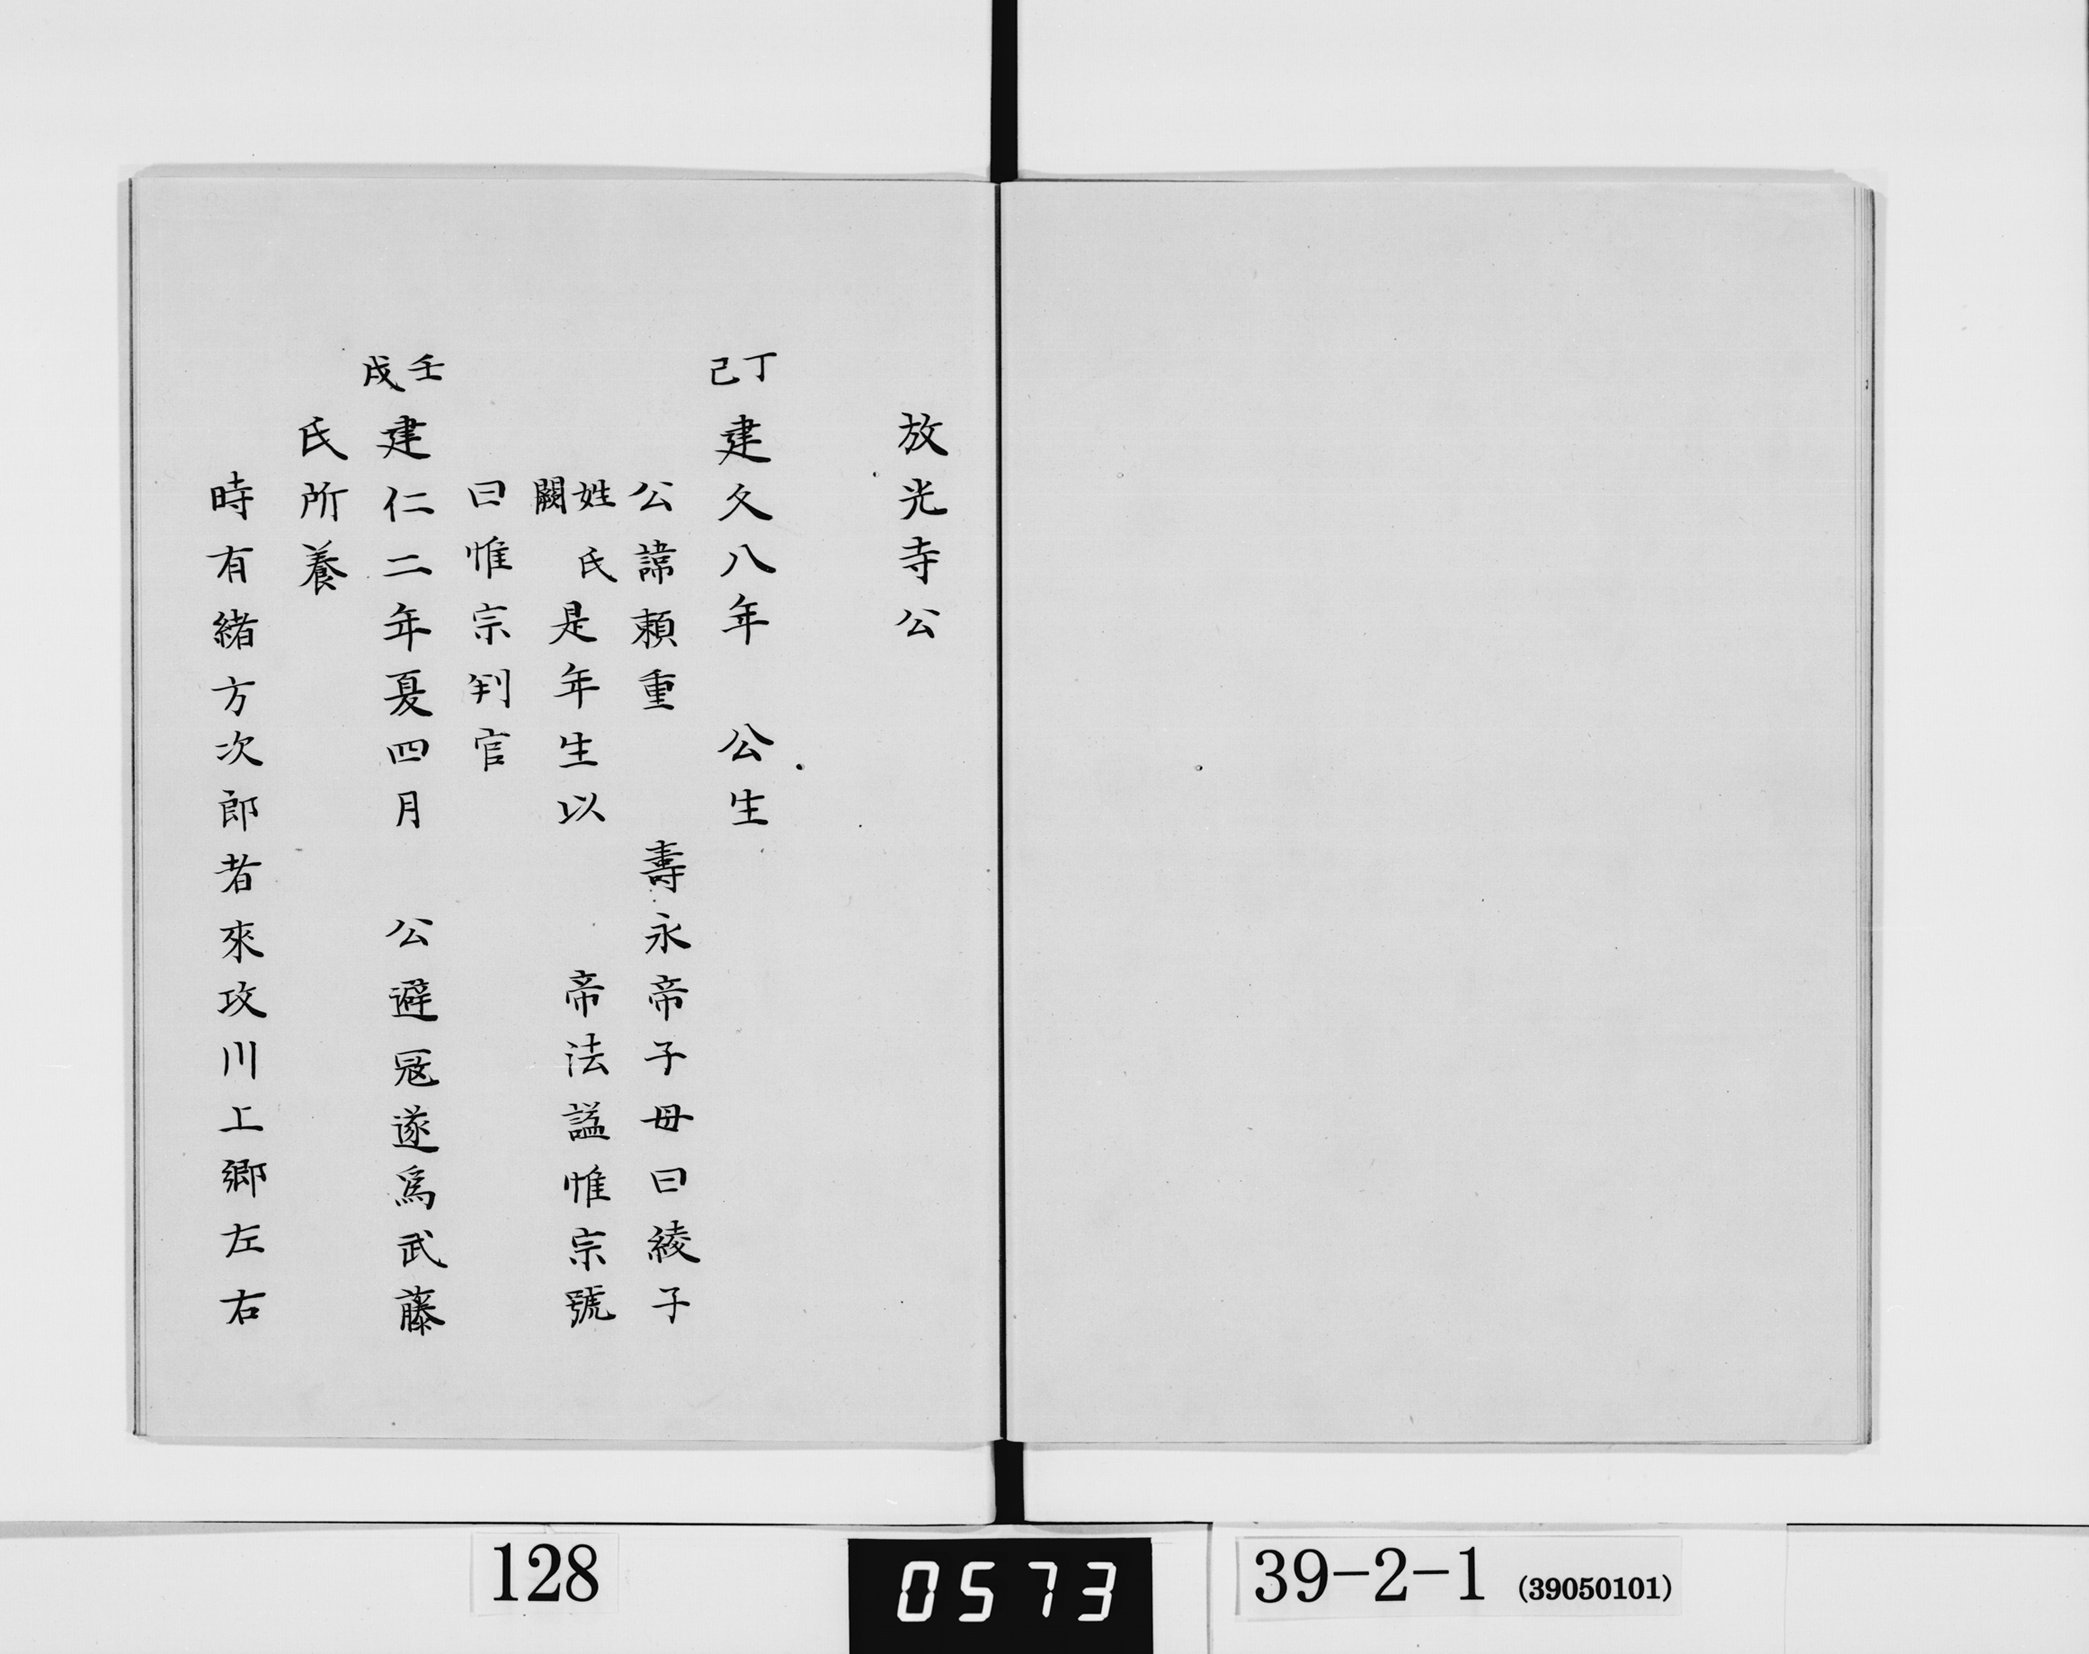 放光寺公
丁己建久八年　公生
公諱頼重　　壽永帝子母曰綾子
姓闕氏是年生以　　帝法謚惟宗號
曰惟宗判官
壬戌建仁二年夏四月　公避冦遂爲武藤
氏所養
時有緒方次郎者來攻川上郷左右
128
0573
39-2-1 (39050101)